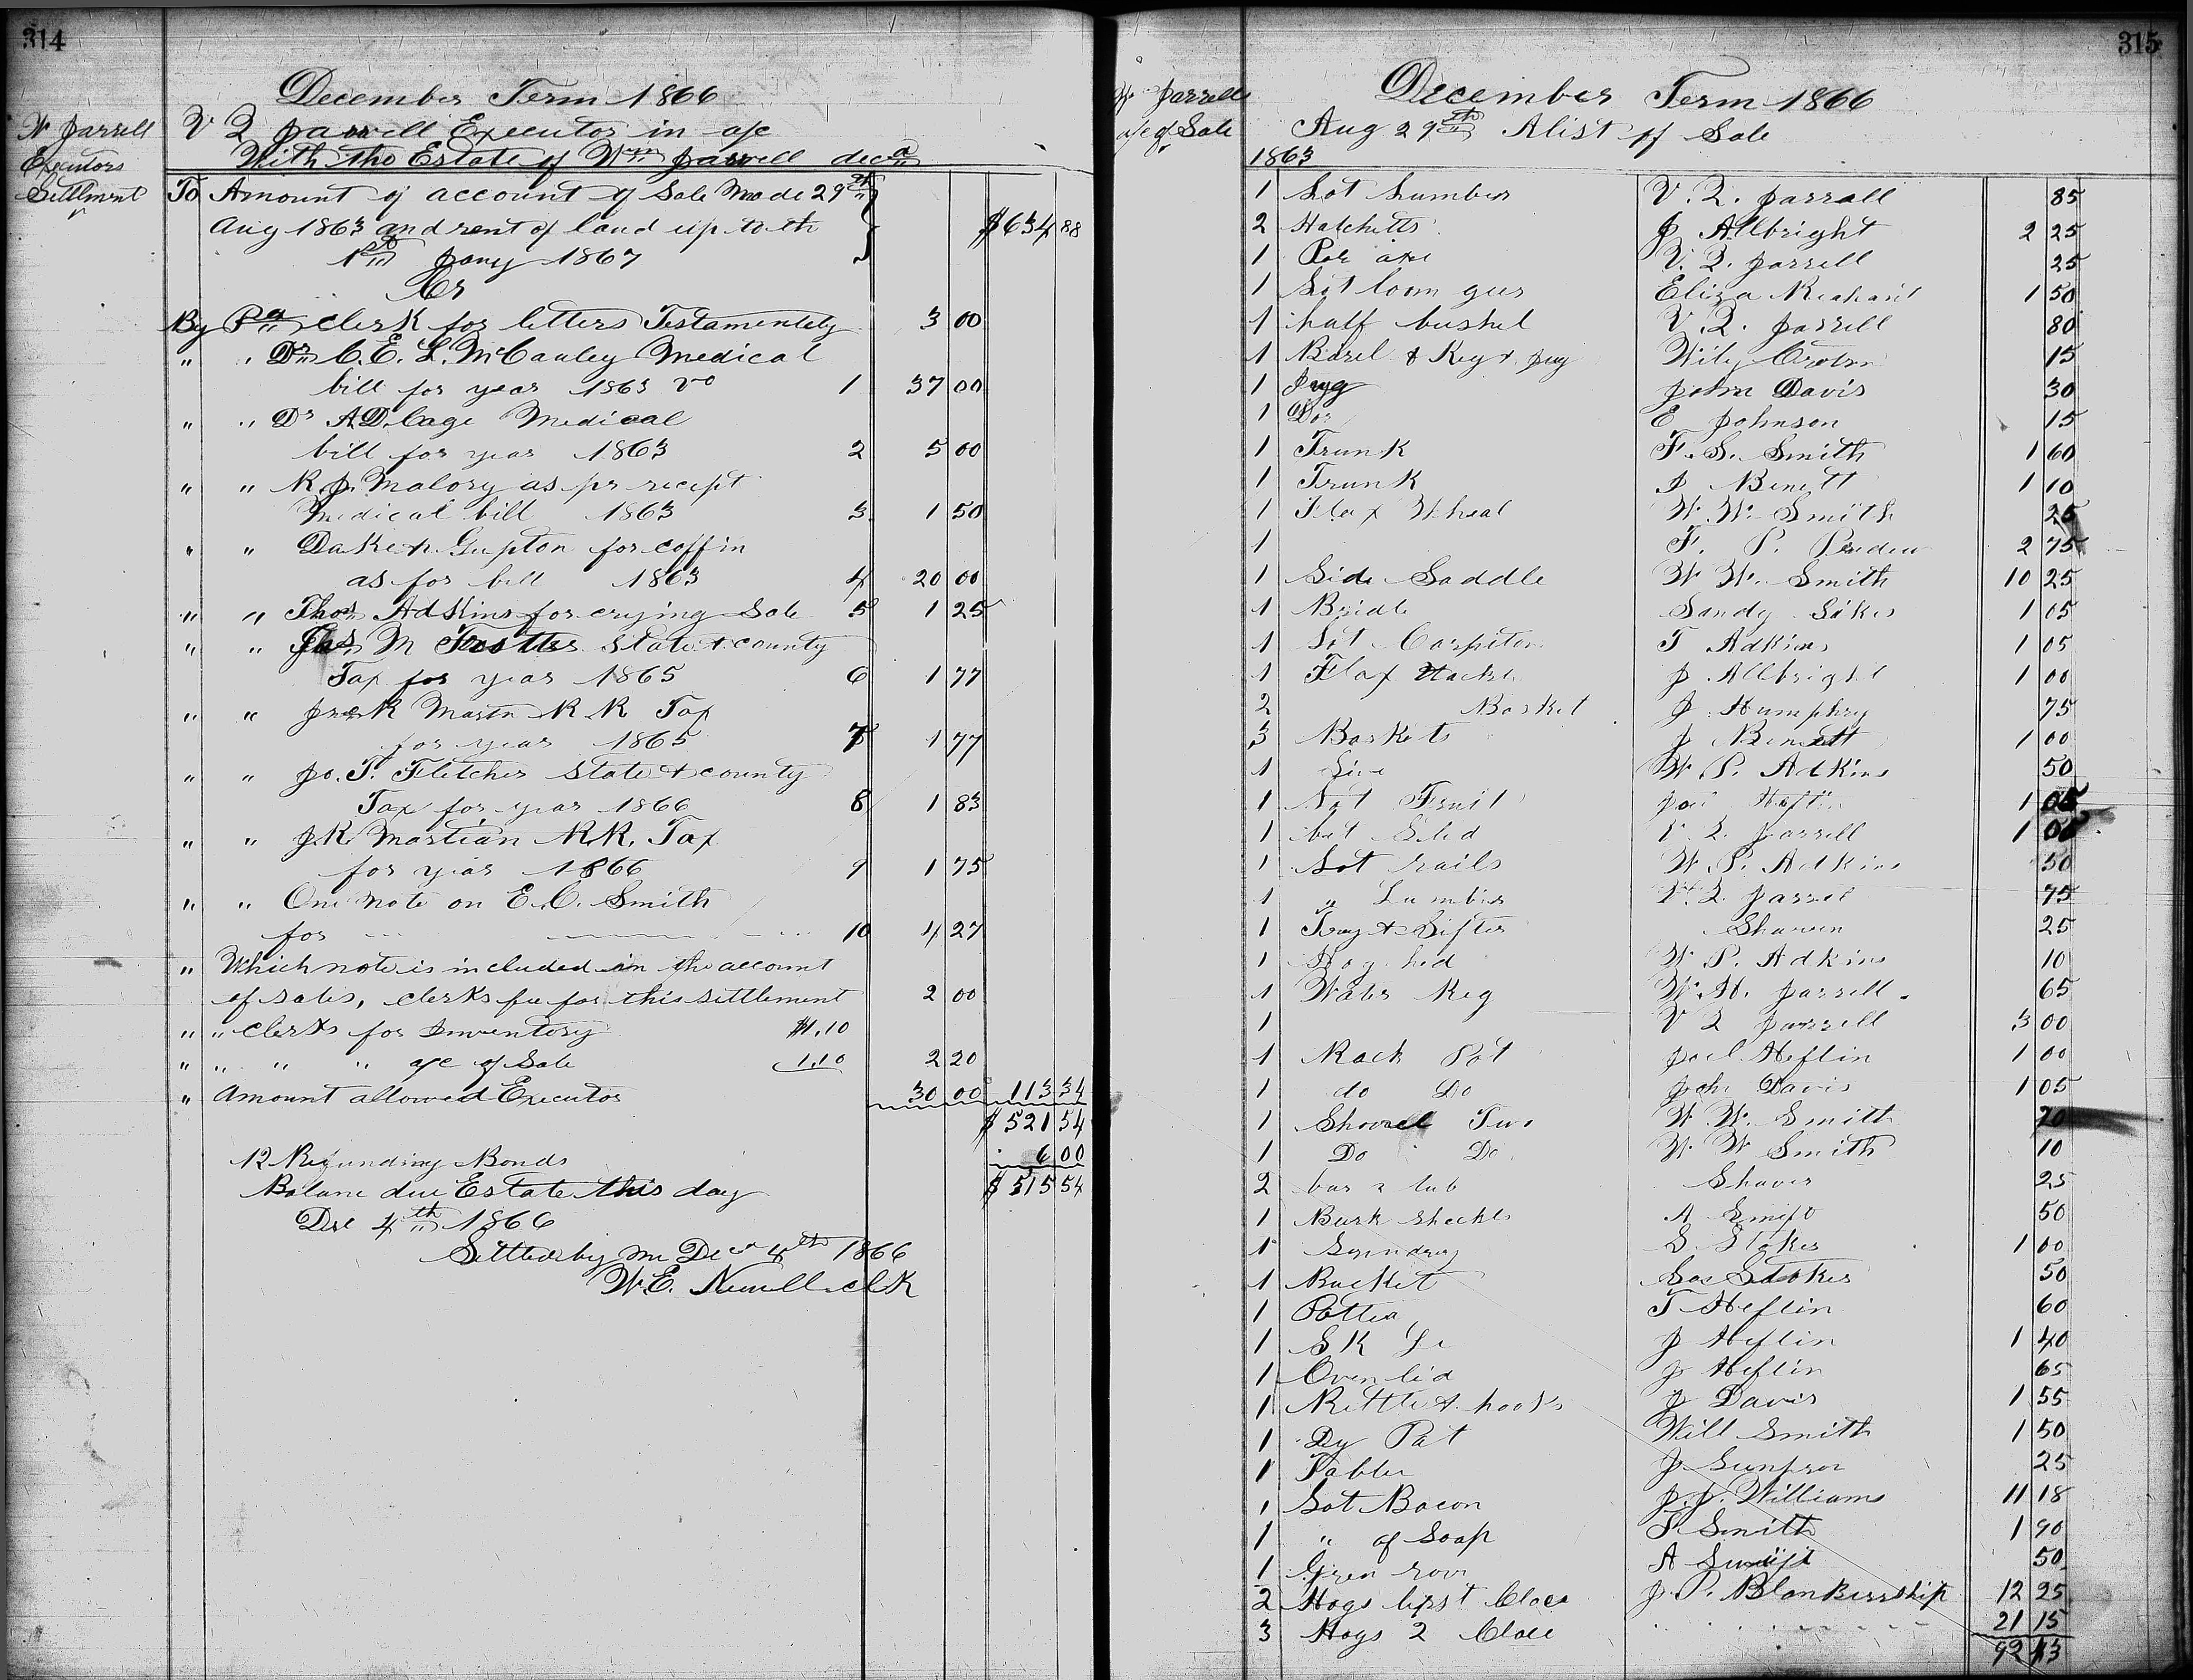 314
December Term 1866
W Jarrell
Executors
Settlment
V Q Jarrell Executor in a/c
With the Estate of Wm Jarrell decd
To Amount of account of Sale Made 29th
Aug 1863 and rent of land up to th $634 88
1st Jany 1867
Cr
By Pd Clerk for letters Testamentety 3 00
" " Dr C. E. L. McCauley Medical
bill for year 1863 Vo 1 37 00
" " Dr A D Cage Medical
bill for year 1863 2 5 00
" " R. J. Malory as pr recept
Medical bill 1863 3 1 50
" " Dake & Gupton for coffin
as for bill 1863 4 20 00
" " Thos Adkins for crying Sale 5 1 25
" " M Trotter State & county
Tax for year 1865 6 1 77
" " Jno R Martn R R Tax
for year 1865 7 1 77
" " Jo. T. Fletcher State & county
Tax for year 1866 8 1 83
" " J R Martian R R. Tax
for year 1866 9 1 75
" " One note on E. C. Smith
for 10 4 27
" Which note is included in the account
of sales, clerks fee for this settlement 2 00
" " Clerks for Inventory $1.10
" " " " a/c of Sale 1.10 2 20
" Amount allowed Executor 30 00 113 34
$521 54
12 Refunding Bonds 6 00
Balanc due Estate this day $515 54
Dec 4th 1866
Settled by me Decr 4th 1866
W. E. Newell clk
315
December Term 1866
W Jarrell
a/c of Sale
Aug 29th A list of Sale
1863
1 Lot Lumber V. Q. Jarrall 85
2 Hatchetts J Allbright 2 25
1 Pole axe V. Q. Jarrell 25
1 Lot loom geer Eliza 1 50
1 half bushel V. Q. Jarrell 80
1 Barel & Keg & Jug Wily 15
1 Jugg John Davis 30
1 Do E Johnson 15
1 Trunk F. S. Smith 1 60
1 Trunk J Binett 1 10
1 Flax Wheal W. W. Smith 25
1 F. P. 2 75
1 Side Saddle W W. Smith 10 25
1 Bridle Sandy 1 05
1 T Adkins 1 05
1 Flax Hackl J Allbright 1 00
2 Basket J Humphry 75
3 Baskets J Binett 1 00
1 W. P. Adkins 50
1 Lot Fruit 1 05
1 V Q Jarrell 1 05
1 Lot rails W. P. Adkins 50
1 " Lumber V. Q. Jarrel 75
1 Tray & Sifter 25
1 W. P. Adkins 10
1 Water Keg W. H. Jarrell. 65
1 V Q Jarrell 3 00
1 Rack Pot Joel Heflin 1 00
1 do Do John Davis 1 05
1 Shovel W W. Smith 20
1 Do Do W W Smith 10
2 tub Shaver 25
1 50
1 S. Stokes 1 00
1 Bucket Stokes 50
1 T Heflin 60
1 J Heflin 1 40
1 Oven lid J Heflin 65
1 Kettle & hooks J Davis 1 55
1 Dy Pot Will Smith 1 50
1 Table J 25
1 Lot Bacon J. J. Williams 11 18
1 " of Soap Smith 1 90
1 A 50
2 Hogs first Class J. P. Blankership 12 25
3 Hogs 2 Class 21 15
92 13